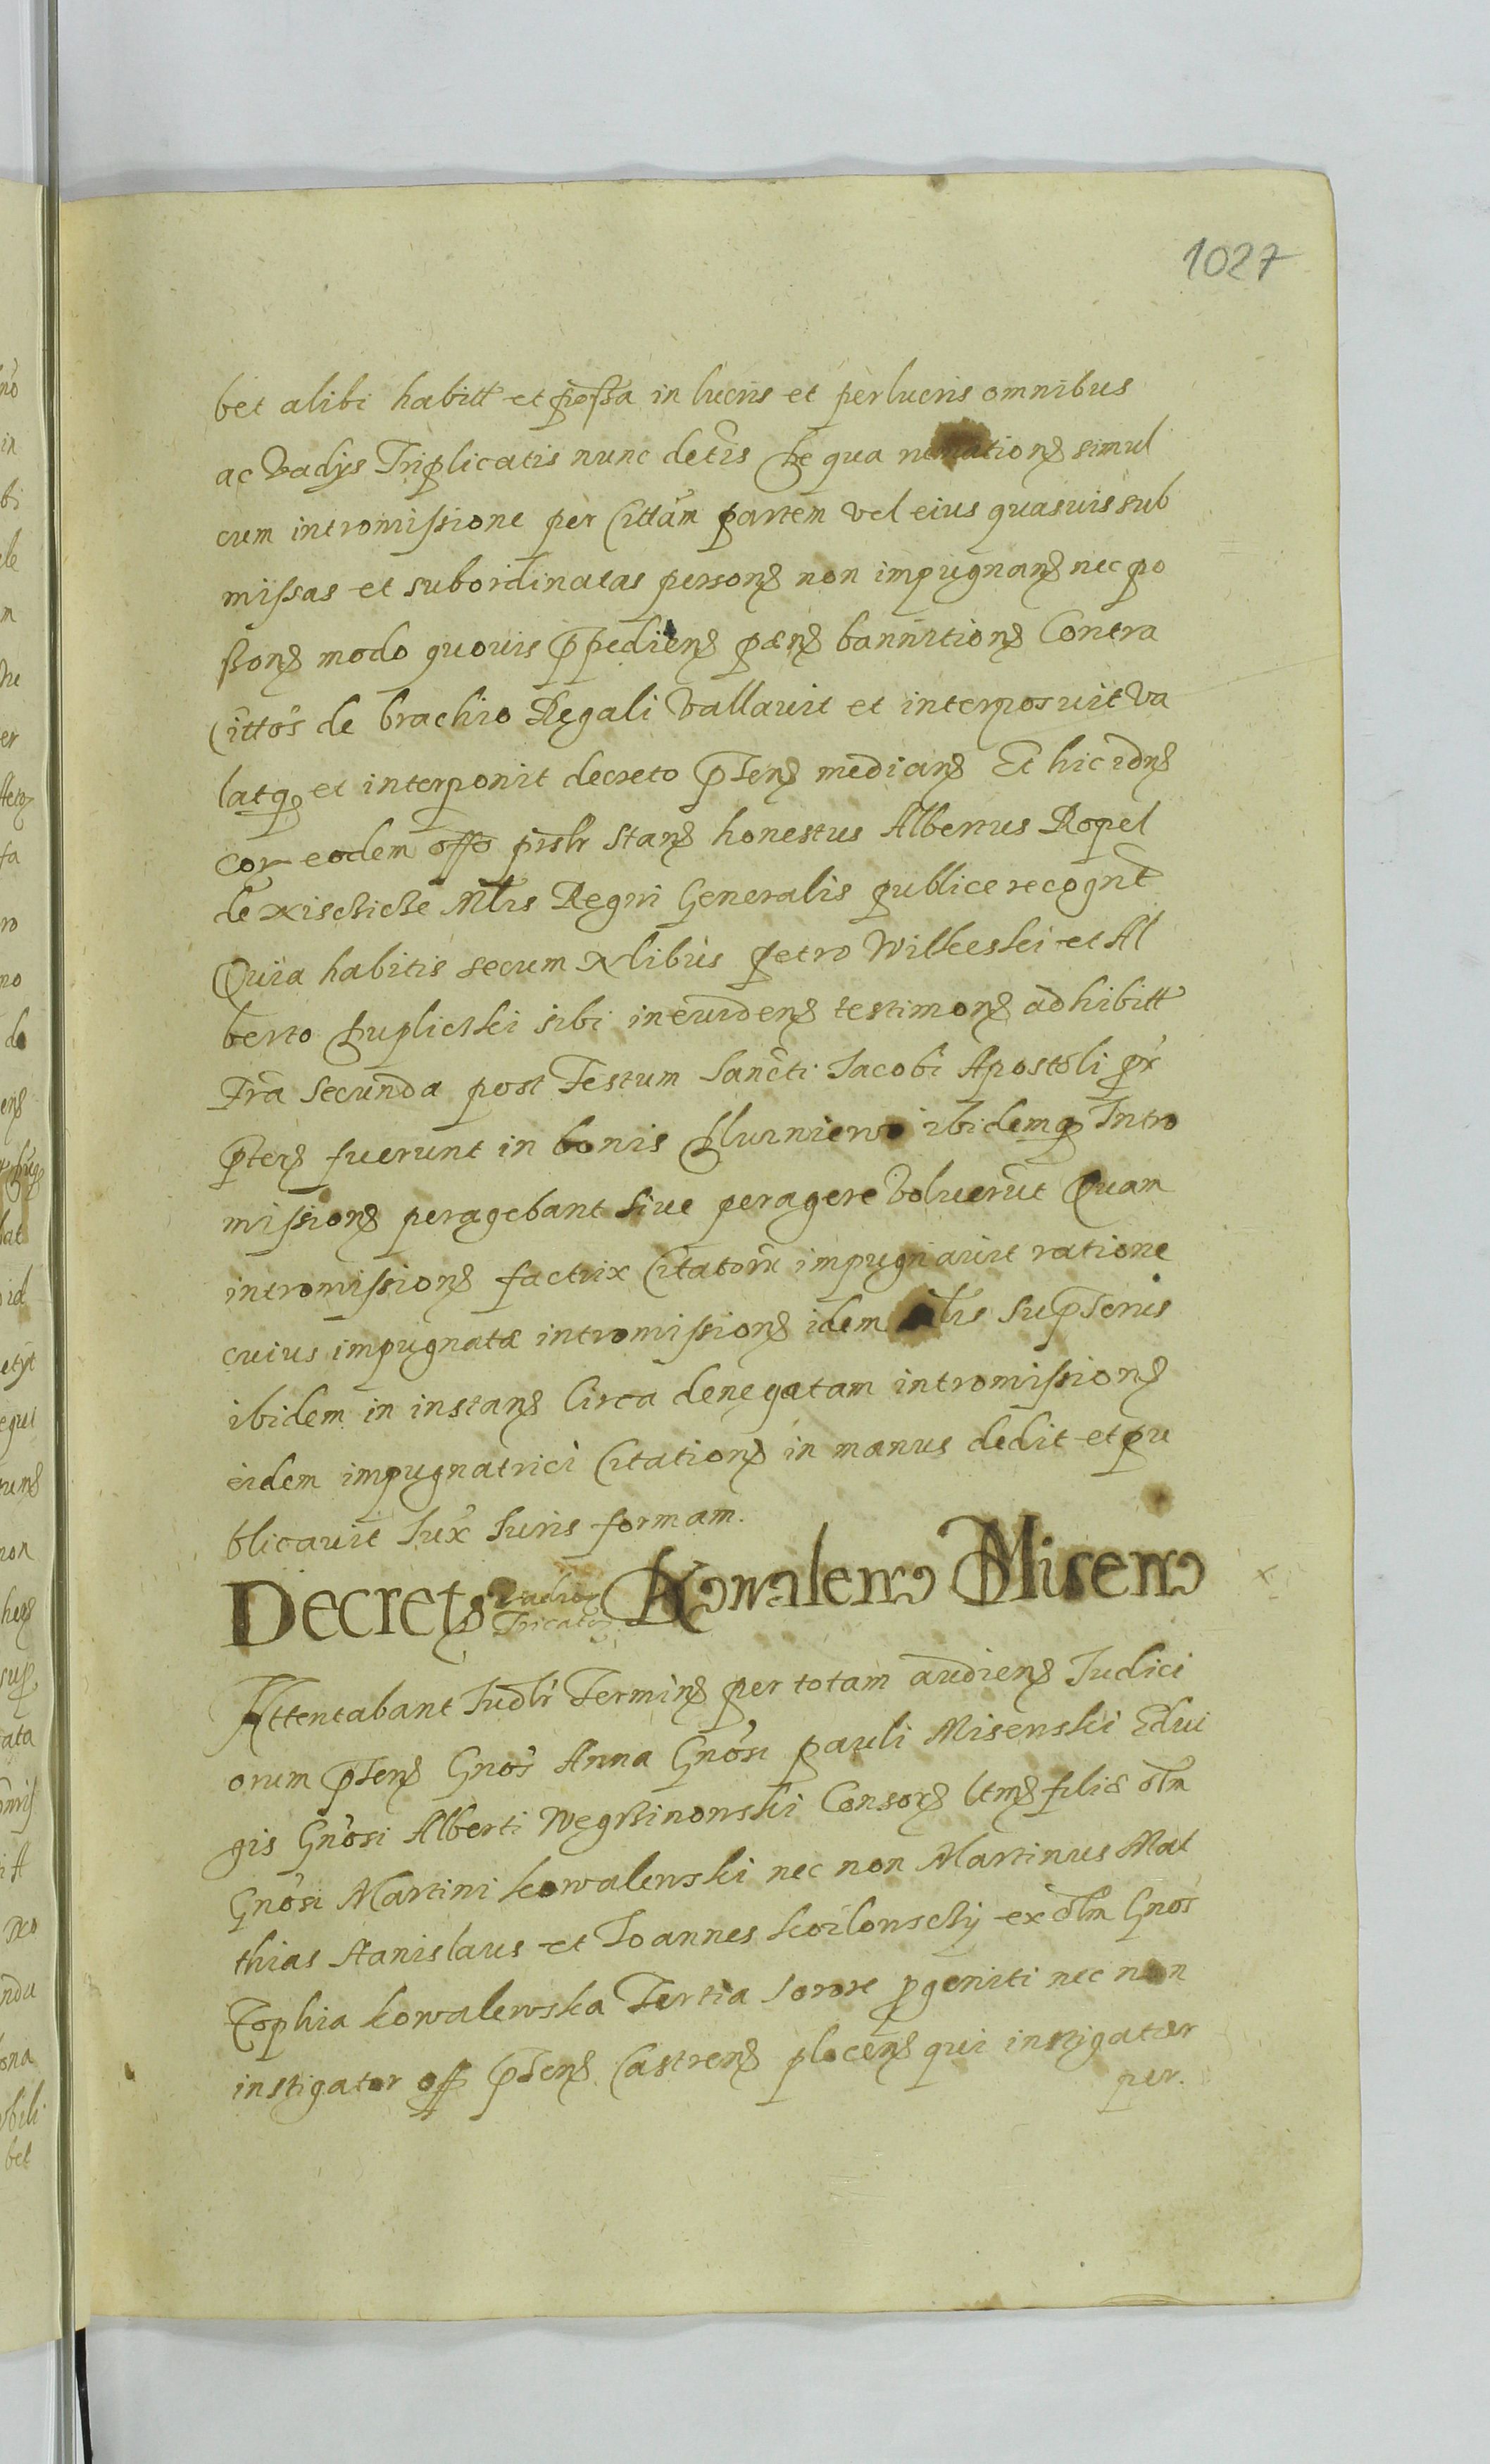 1027
bet alibi habitt et possa in lucris et perlucris omnibus
ac Vadys Triplicatis nunc detis De qua simul
cum intromissione per Cittam partem vel eius quasuis sub
missas et subordinatas person₃ non impugnan₃ nec po
sson₃ modo quouis ppedien₃ pœn₃ bannition₃ Contra
Cittos de brachio Regali Vallavit et interposuit Va
latq₃ et interponit decreto pnten₃ median₃ Et hic idn₃
cor eodem offo prslr stan₃ honestus Albertus Ropel
de Mtris Regni Generalis publice recognt
Quia habitis secum Nlibus Petro Wilkeski et Al
berto Suplicski sibi in euiden₃ testimon₃ adhibitt
Fra Secunda post Festum Sancti Jacobi Apostoli pr
pter₃ fuerunt in bonis ibidemq₃ Intro
mission₃ peragebant siue peragere Voluerut Quam
intromission₃ factrix Citatoru impugnauit ratione
cuius impugnatæ intromission₃ idem supterius
ibidem in instan₃ Circa denegatam intromission₃
eidem impugnatrici Citation₃ in manus dedit et pu
blicauit Jux Juris formam.
Decret₃ Vadior Tricator Kowalewo Misewo
Attentabant Judlr Termin₃ per totam audien₃ Judici
orum pnten₃ Gnos Anna Gnosi Pauli Misenski Edui
gis Gnosi Alberti Wegrzinowski Consors ltm₃ filiæ olm
Gnosi Martini Kowalewski nec non Martinus Mat
thias Stanislaus et Joannes Kozlowschy ex olm Gnos
Zophia Kowalewska Tertia Sorore pgeniti nec non
instigator off pnten₃ Castren₃ plocen₃ qui instigatur
per.